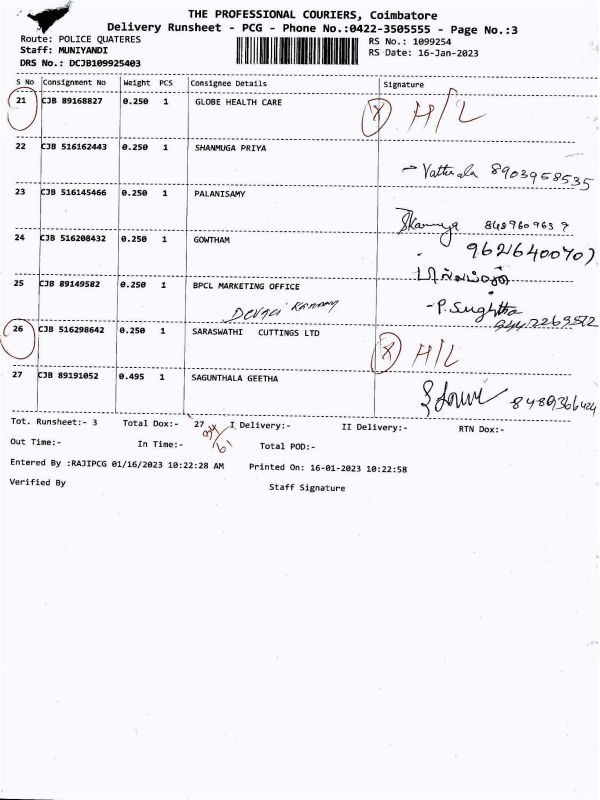 THE PROFESSIONAL COURIERS, Coimbatore
Delivery Runsheet - PCG - Phone No.:0422-3505555 - Page No.:3
Route: POLICE QUATERES
RS No.: 1099254
Staff: MUNIYANDI
RS Date: 16-Jan-2023
DRS No.: DCJB109925403
S No Consignment No Weight PCS Consignee Details Signature
21 CJB 89168827 0.250 1 GLOBE HEALTH CARE X H/L
22 CJB 516162443 0.250 1 SHANMUGA PRIYA
8903958535
23 CJB 516145466 0.250 1 PALANISAMY
8489609639
24 CJB 516208432 0.250 1 GOWTHAM
9626400707
25 CJB 89149582 0.250 1 BPCL MARKETING OFFICE
Devaci Kannan - P. Sughtha
26 CJB 516298642 0.250 1 SARASWATHI CUTTINGS LTD X H/L
27 CJB 89191052 0.495 1 SAGUNTHALA GEETHA
8489366424
Tot. Runsheet:- 3 Total Dox:- 27 I Delivery:- II Delivery:- RTN Dox:-
Out Time:- In Time:- Total POD:-
Entered By :RAJIPCG 01/16/2023 10:22:28 AM Printed On: 16-01-2023 10:22:58
Verified By Staff Signature